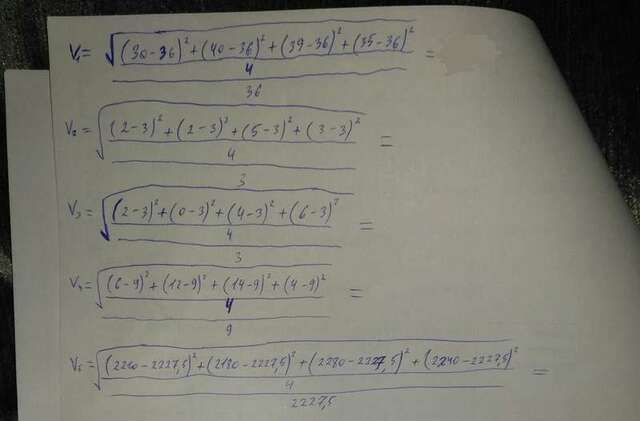 V₁ = √((30-36)² + (40-36)² + (39-36)² + (35-36)²
4
36 =
V₂ = √((2-3)² + (2-3)² + (5-3)² + (3-3)²
4
3 =
V₃ = √((2-3)² + (0-3)² + (4-3)² + (6-3)²
4
3 =
V₄ = √((6-9)² + (12-9)² + (14-9)² + (4-9)²
4
9 =
V₅ = √((2210-2227,5)² + (2180-2227,5)² + (2280-2227,5)² + (2240-2227,5)²
4
2227,5 =